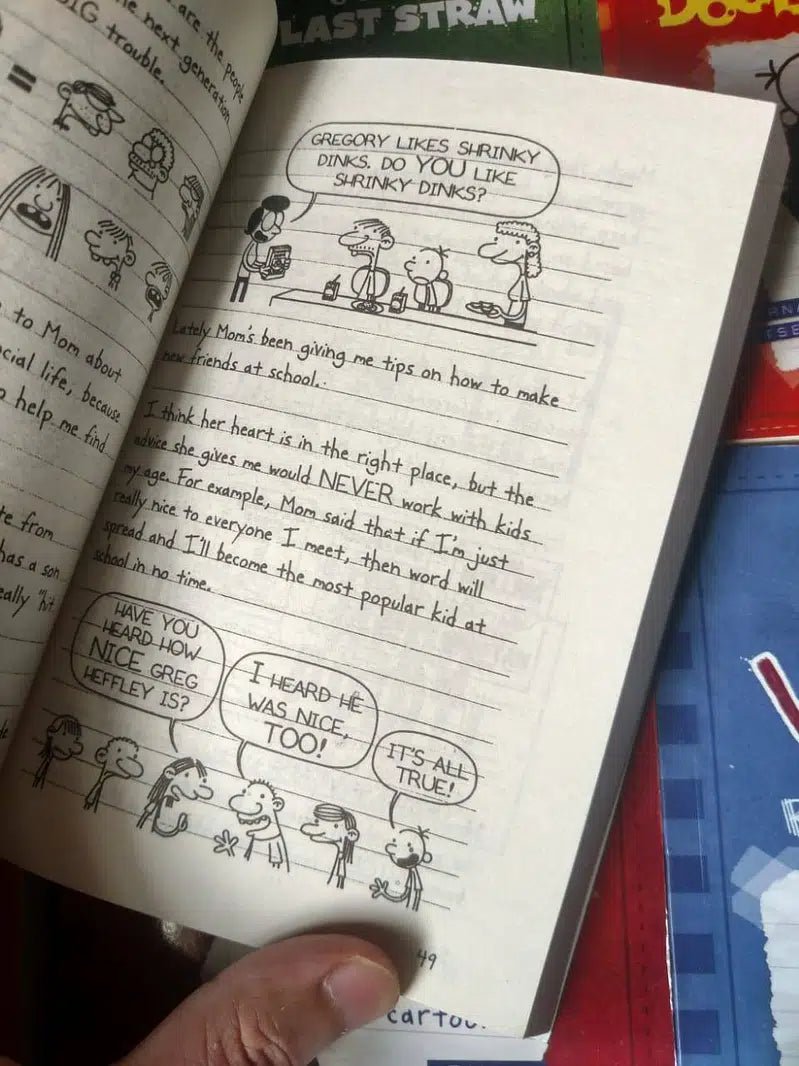 are the people
the next generation
BIG trouble.
=
to Mom about
cial life, because
help me find
te from
has a son
eally "hit
GREGORY LIKES SHRINKY
DINKS. DO YOU LIKE
SHRINKY DINKS?
Lately Mom's been giving me tips on how to make
new friends at school.
I think her heart is in the right place, but the
advice she gives me would NEVER work with kids
my age. For example, Mom said that if I'm just
really nice to everyone I meet, then word will
spread and I'll become the most popular kid at
school in no time.
HAVE YOU
HEARD HOW
NICE GREG
HEFFLEY IS?
I HEARD HE
WAS NICE,
TOO!
IT'S ALL
TRUE!
49
LAST STRAW